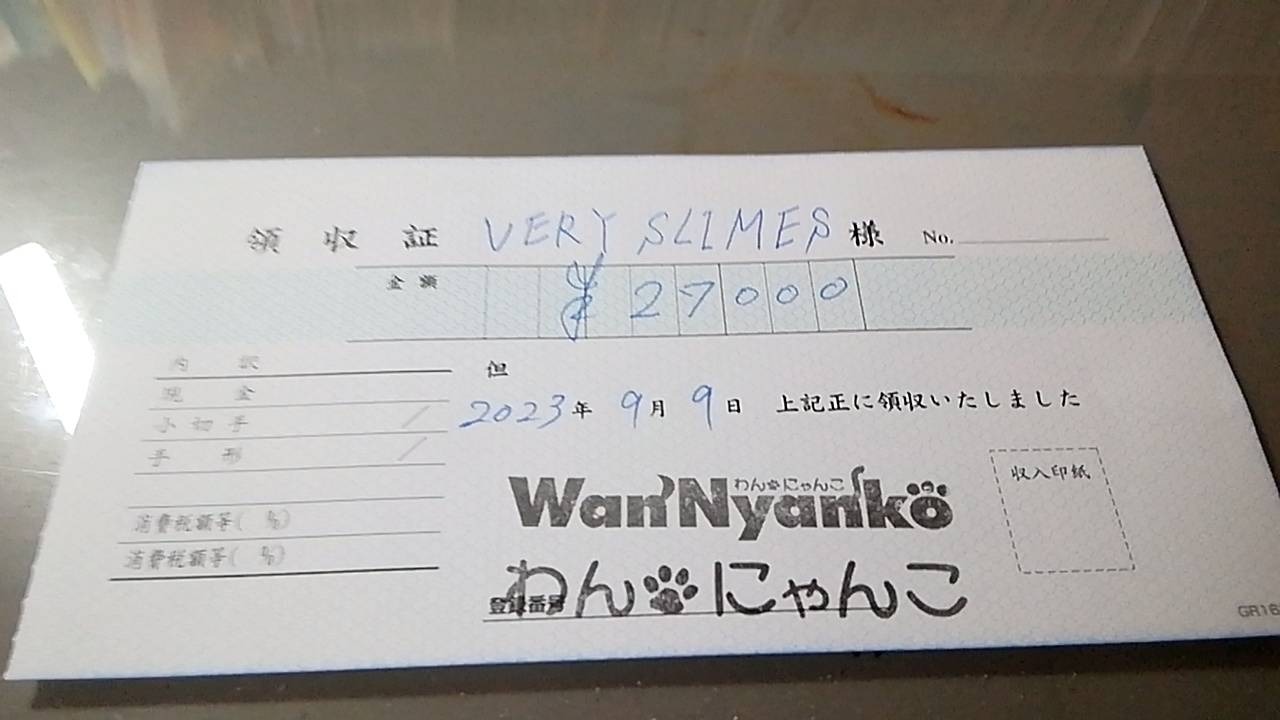 領収証 VERY SLIMES 様 No.
金額 ¥27000
内訳
現金
小切手 /
手形 /
消費税額等( %)
消費税額等( %)
但
2023年 9月 9日 上記正に領収いたしました
収入印紙
わんにゃんこ
Wan'Nyanko
わんにゃんこ
登録番号